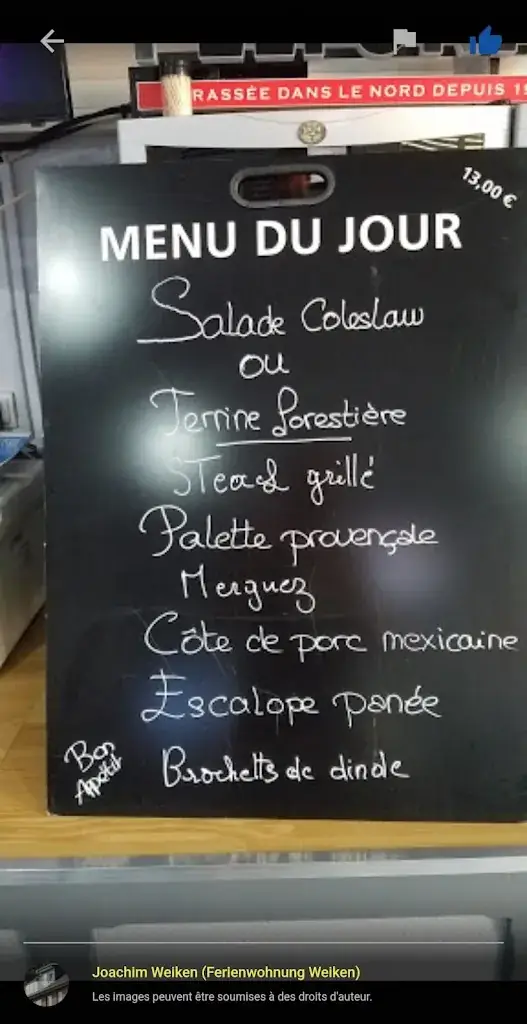 RASSÉE DANS LE NORD DEPUIS 1
13,00 €
MENU DU JOUR
Salade Coleslaw
ou
Terrine forestière
STeack grillé
Palette provençale
Merguez
Côte de porc mexicaine
Escalope panée
Brochetts de dinde
Bon
Appétit
Joachim Weiken (Ferienwohnung Weiken)
Les images peuvent être soumises à des droits d'auteur.